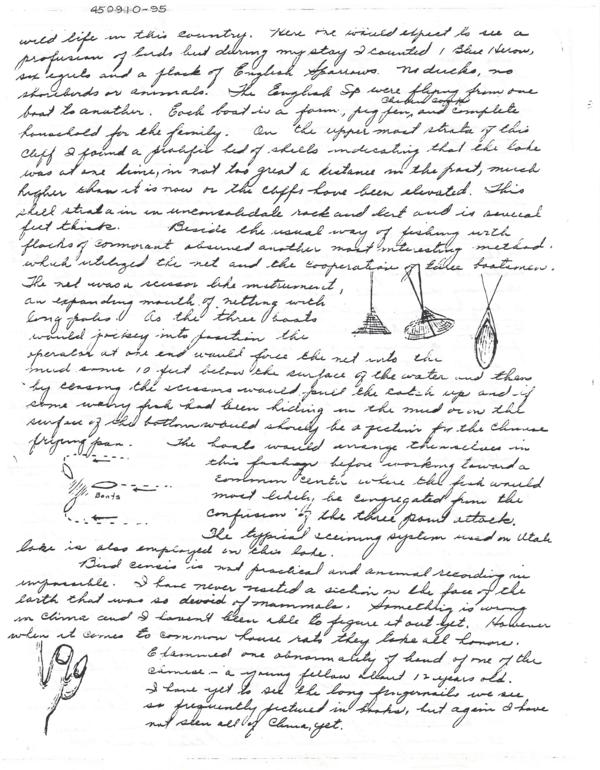 450910-95
wild life in this country. Here one would expect to see a
profusion of birds but during my stay I counted 1 Blue Heron,
six egrets and a flock of English Sparrows. No ducks, no
shorebirds or animals. The English Sp were flying from one
boat to another. Each boat is a farm, pig pen, chicken coop and complete
household for the family. On the upper most strata of this
cliff I found a prolific bed of shells indicating that the lake
was at one time, in not too great a distance in the past, much
higher than it is now or the cliffs have been elevated. This
shell strata in in unconsolidate rock and dirt and is several
feet thick. Beside the usual way of fishing with
flocks of cormorant observed another most interesting method
which utilized the net and the cooperation of three boatsmen.
The net was a scissor like instrument,
an expanding mouth of netting with
long poles. As the three boats
would jockey into position the
operator at one end would force the net into the
mud some 10 feet below the surface of the water and then
by closing the scissors would pull the catch up and if
some weary fish had been hiding in the mud or on the
surface of the bottom would shorely be a victim for the Chinese
frying pan. The boats would arrange themselves in
this fashion before working toward a
common center where the fish would
most likely be congregated from the
confusion of the three point attack.
Boats
The typical seining system used on Utah
lake is also employed on this lake.
Bird census is not practical and animal recording is
impossible. I have never visited a section on the face of the
Earth that was so devoid of mammals. Something is wrong
in China and I havent been able to figure it out yet. However
when it comes to common house rats they take all honors.
Examined one abnormality of hand of one of the
Chinese - a young fellow about 12 years old.
I have yet to see the long fingernails we see
so frequently pictured in books, but again I have
not seen all of China, yet.